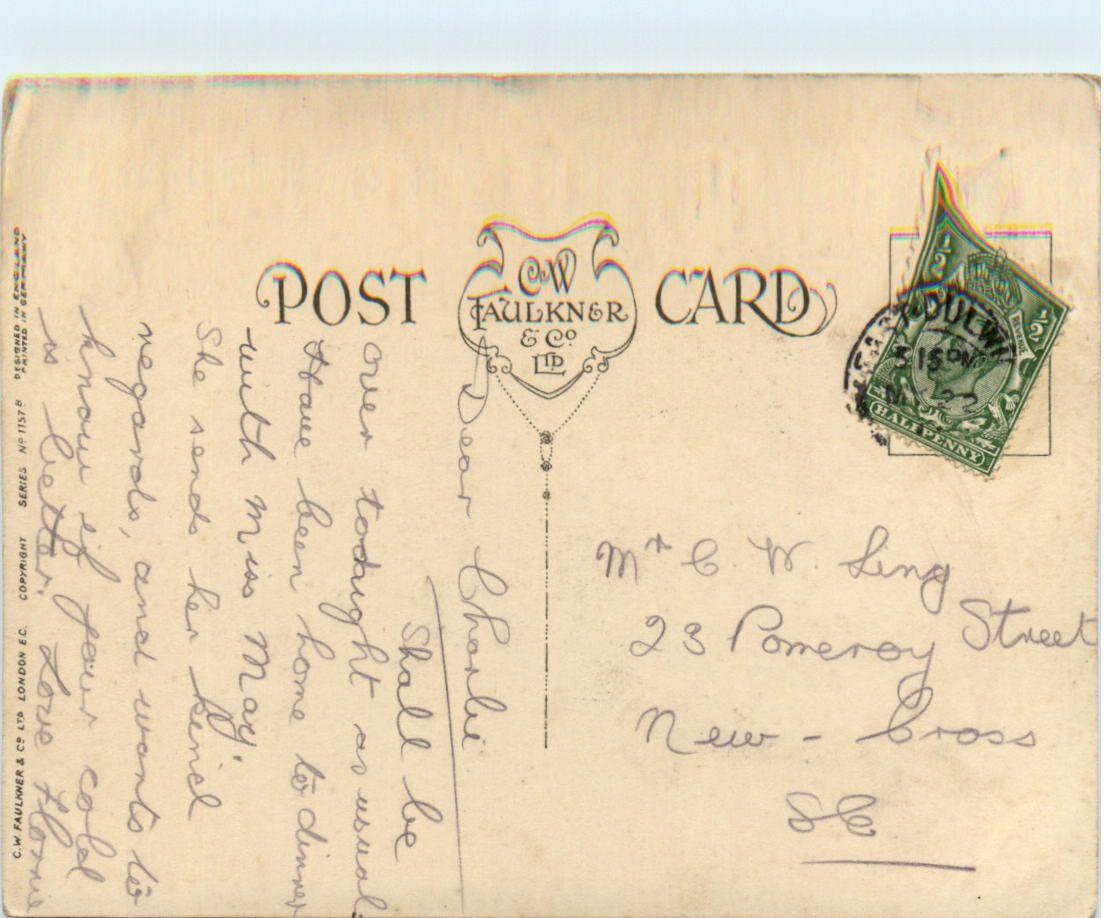 POST CARD
C.W
FAULKNER
& Co
LTD
½ ½
HALFPENNY
15 PM
Dear Charlie
Shall be
over tonight as usual.
Have been home to dinner
with Miss May,
She sends her kind
regards, and wants to
know if your cold
is better. Love Florrie
Mr C. W. Ling
23 Pomeroy Street
New - Cross
SE
C.W. FAULKNER & Co LTD LONDON E.C. COPYRIGHT SERIES No 1157 B DESIGNED IN ENGLAND
PRINTED IN GERMANY